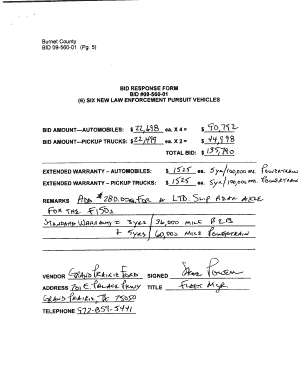 Burnet County
BID 09-560-01 (Pg. 5)
BID RESPONSE FORM
BID #09-560-01
(6) SIX NEW LAW ENFORCEMENT PURSUIT VEHICLES
BID AMOUNT—AUTOMOBILES: $ 22,698 ea. X 4 = $ 90,792
BID AMOUNT—PICKUP TRUCKS: $ 22,499 ea. X 2 = $ 44,998
TOTAL BID: $ 135,790
EXTENDED WARRANTY - AUTOMOBILES: $ 1525 ea. 5yr/100,000 mi. POWERTRAIN
EXTENDED WARRANTY - PICKUP TRUCKS: $ 1525 ea. 5yr/100,000 mi. POWERTRAIN
REMARKS ADD $280.00 ea. FOR A LTD. SLIP REAR AXLE
FOR THE F150s
STANDARD WARRANTY = 3 yrs / 36,000 MILE B2B
& 5 yrs / 60,000 MILE POWERTRAIN
VENDOR GRAND PRAIRIE FORD SIGNED
ADDRESS 701 E PALACE PKWY TITLE FLEET MGR.
GRAND PRAIRIE, TX 75050
TELEPHONE 972-859-5441